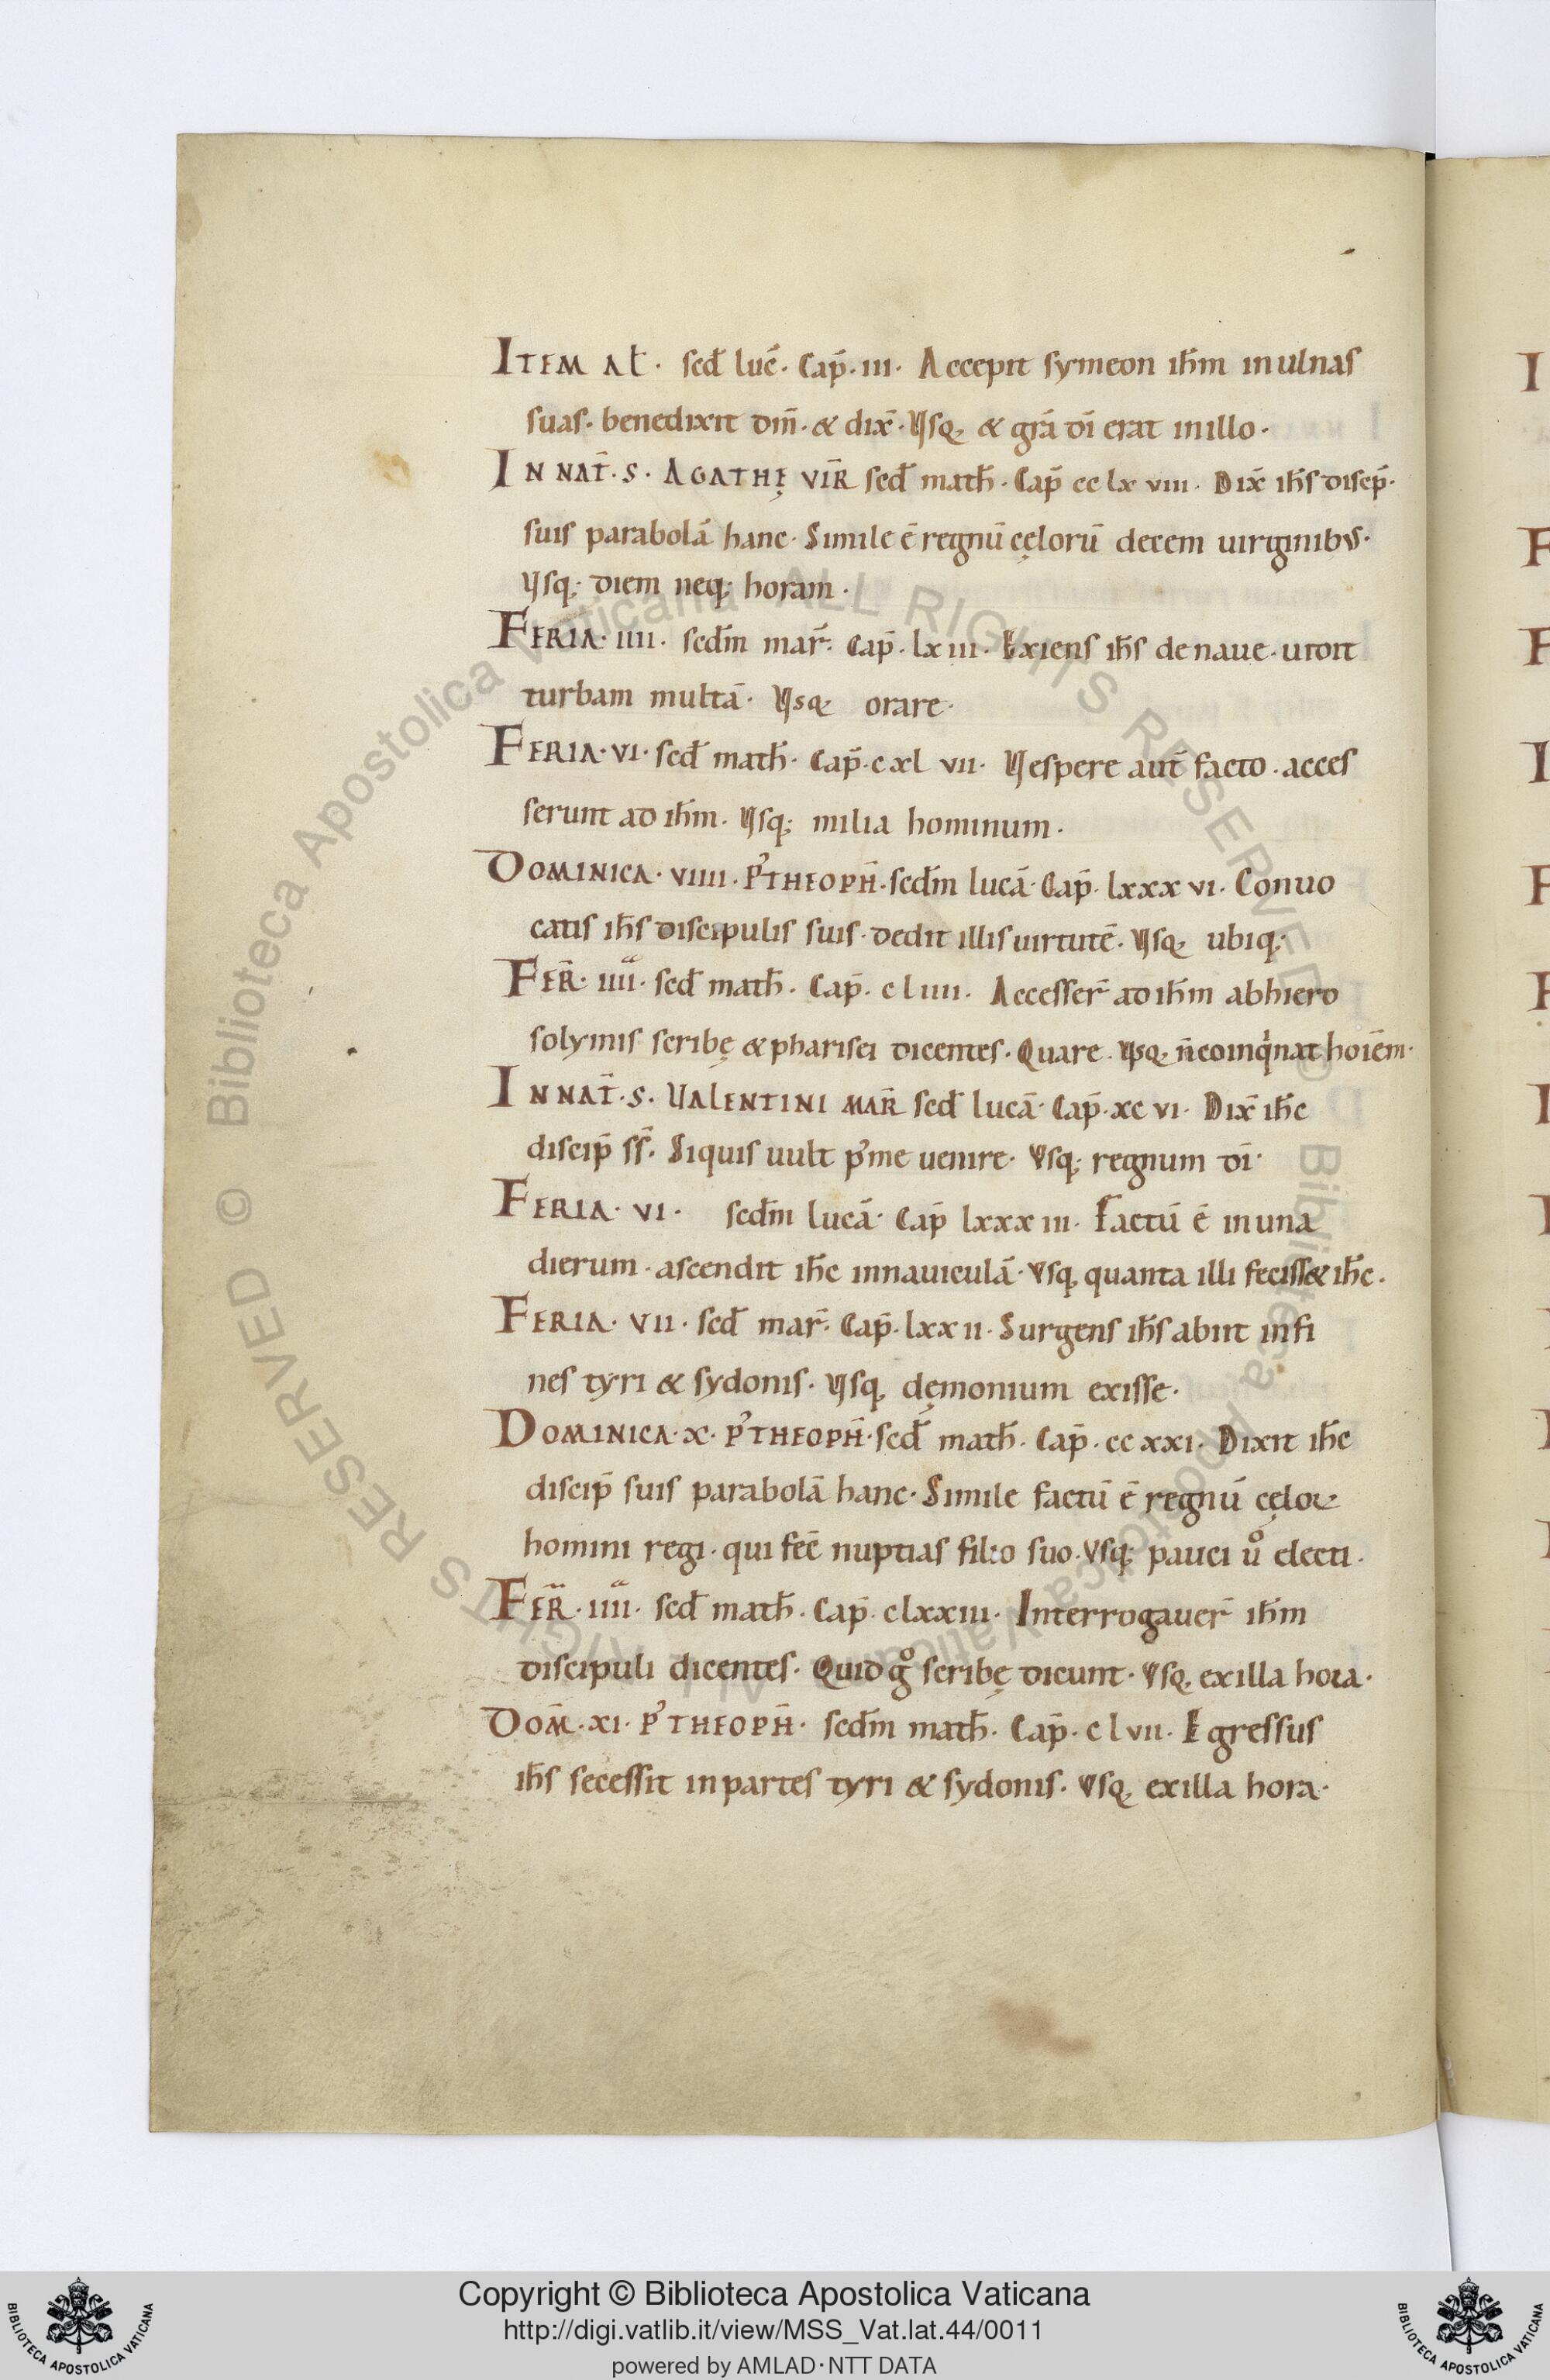 Item al̄· scd̄ luc̄· Cap̄·iii· Accepit symeon ih̄m inulnas
suas· benedixit dm̄·& dix̄·Vsq; & grā dī erat inillo·
In nat̄·S· Agathę vir̄ scd̄ math̄· Cap̄ cc lx viii· Dix̄ ih̄s discip̄·
suis parabolā hanc· Simile ē regnū cęlorū decem uirginibus·
Vsq; diem neq; horam·
Feria·iiii· scdm̄ mar̄· Cap̄·lx iii· Exiens ih̄s denaue·uidit
turbam multā· Vsq; orare·
Feria·vi·scd̄ math̄· Cap̄·c xl vii· Vespere aut̄ facto·acces
serunt ad ih̄m· Vsq; milia hominum·
Dominica·viiii·P' theoph̄·scdm̄ lucā· Cap̄· lxxx vi· Conuo
catis ih̄s discipulis suis·dedit illis uirtutē· Vsq; ubiq;·
Fer̄·iiii·scd̄ math̄· Cap̄· c l iiii· Accesser̄ ad ih̄m abhiero
solymis scribę & pharisei dicentes·Quare·Vsq; n̄ coinqinat hoiēm·
In nat̄·S·Valentini mar̄ scd̄ lucā· Cap̄·xc vi· Dix̄ ih̄c
discip̄ ss̄· Siquis uult p' me uenire· Vsq; regnum dī·
Feria·vi· scdm̄ lucā· Cap̄ lxxx iii· Factū ē inuna
dierum·ascendit ih̄c innauiculā·Vsq; quanta illi feciss& ih̄c·
Feria·vii·scd̄ mar̄· Cap̄·lxx ii·Surgens ih̄s abiit infi
nes tyri & sydonis· Vsq; dęmonium exisse·
Dominica·x·P' theoph̄·scd̄ math̄· Cap̄·cc xxi· Dixit ih̄c
discip̄ suis parabolā hanc·Simile factū ē regnū cęloꝝ
homini regi·qui fec̄ nuptias filio suo·Vsq; pauci uº electi·
Fer̄·iiii· scd̄ math̄·Cap̄·clxxiii· Interrogauer̄ ih̄m
discipuli dicentes· Quid gº scribę dicunt·Vsq; exilla hora·
Dom̄·xi·P' theoph̄· scdm̄ math̄· Cap̄·c l vii· Egressus
ih̄s secessit inpartes tyri & sydonis· Vsq; exilla hora·
Copyright © Biblioteca Apostolica Vaticana
http://digi.vatlib.it/view/MSS_Vat.lat.44/0011
powered by AMLAD·NTT DATA
BIBLIOTECA APOSTOLICA VATICANA
BIBLIOTECA APOSTOLICA VATICANA
© Biblioteca Apostolica Vaticana ALL RIGHTS RESERVED © Biblioteca Apostolica Vaticana ALL RIGHTS RESERVED